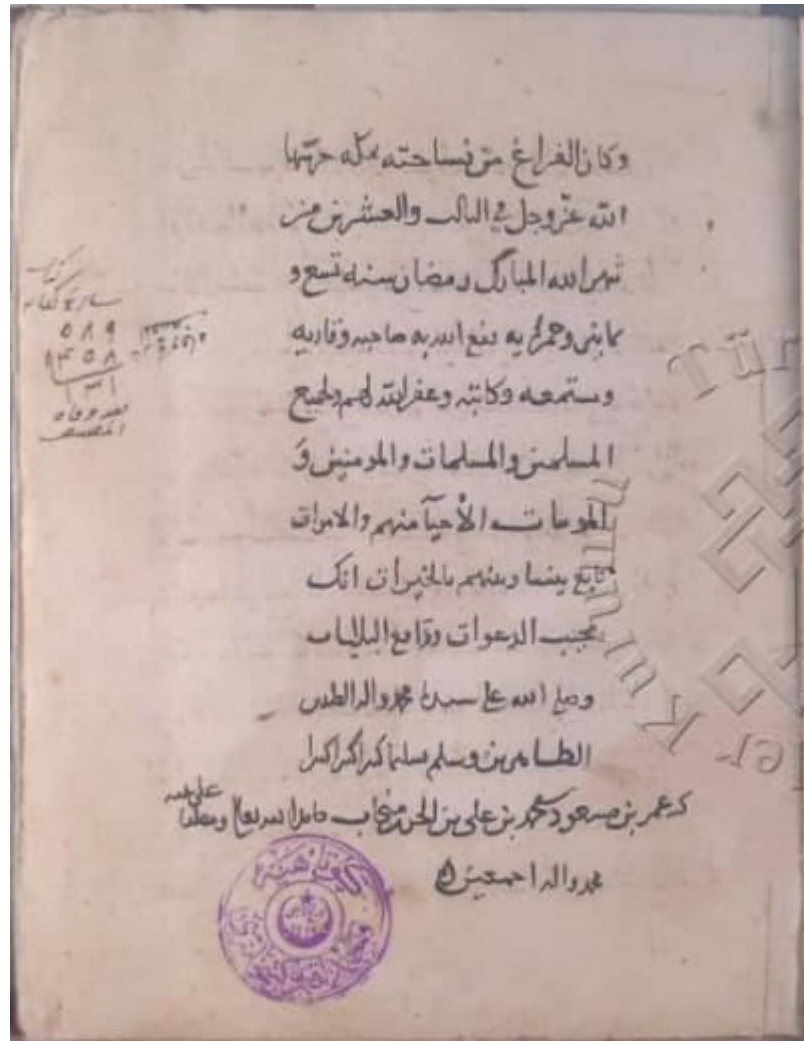 وكان الفراغ من نساحته بمكه حرسها
الله عز وجل في الثالث والعشرين من
شهر الله المبارك رمضان سنه تسع و
ثمانين وخمسمايه نفع الله به صاحبه وقاريه
ومستمعه وكاتبه وغفر الله لهم ولجميع
المسلمين والمسلمات والمومنين و
المومنات الأحيآ منهم والاموات
تابع بيننا وبينهم بالخيرات انك
مجيب الدعوات ودافع البليات
وصلى الله على سيدنا محمد واله الطيبين
الطاهرين وسلم تسليما كثيرا كثيرا
كتبه عمر بن مسعود بن محمد بن علي بن حامدا لله تعالى ومصليا على نبيه
محمد واله اجمعين
تاريخ كتابت
٥٨٩
١٤٥٨
١٣١
بعد وفاة
المصنف
كوتاهيه